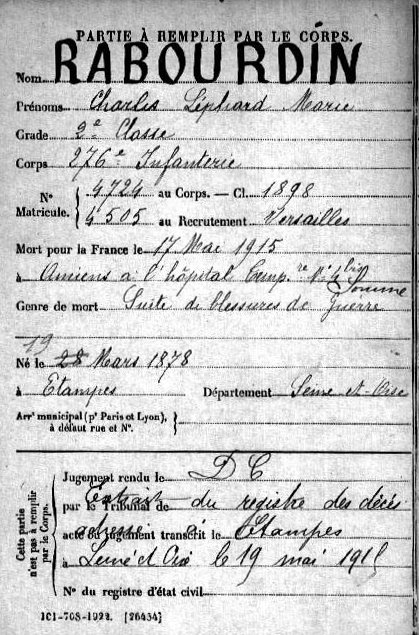 PARTIE À REMPLIR PAR LE CORPS.
Nom RABOURDIN
Prénoms Charles Léphard Marie
Grade 2e Classe
Corps 276e Infanterie
N° Matricule. { 4724 au Corps. — Cl. 1898
4505 au Recrutement Versailles
Mort pour la France le 17 Mai 1915
à Amiens à l'hôpital Temp.re N° 1 bis Somme
Genre de mort Suite de blessures de Guerre
19
Né le 28 Mars 1878
à Etampes Département Seine et Oise
Arrt municipal (pr Paris et Lyon), à défaut rue et N°. }
Cette partie n'est pas à remplir par le Corps. {
Jugement rendu le D C
par le Tribunal de Extrait du registre des décès
acte ou jugement transcrit le adressé à Etampes
à Seine et Oise le 19 mai 1915
N° du registre d'état civil
101-708-1922. [26434]